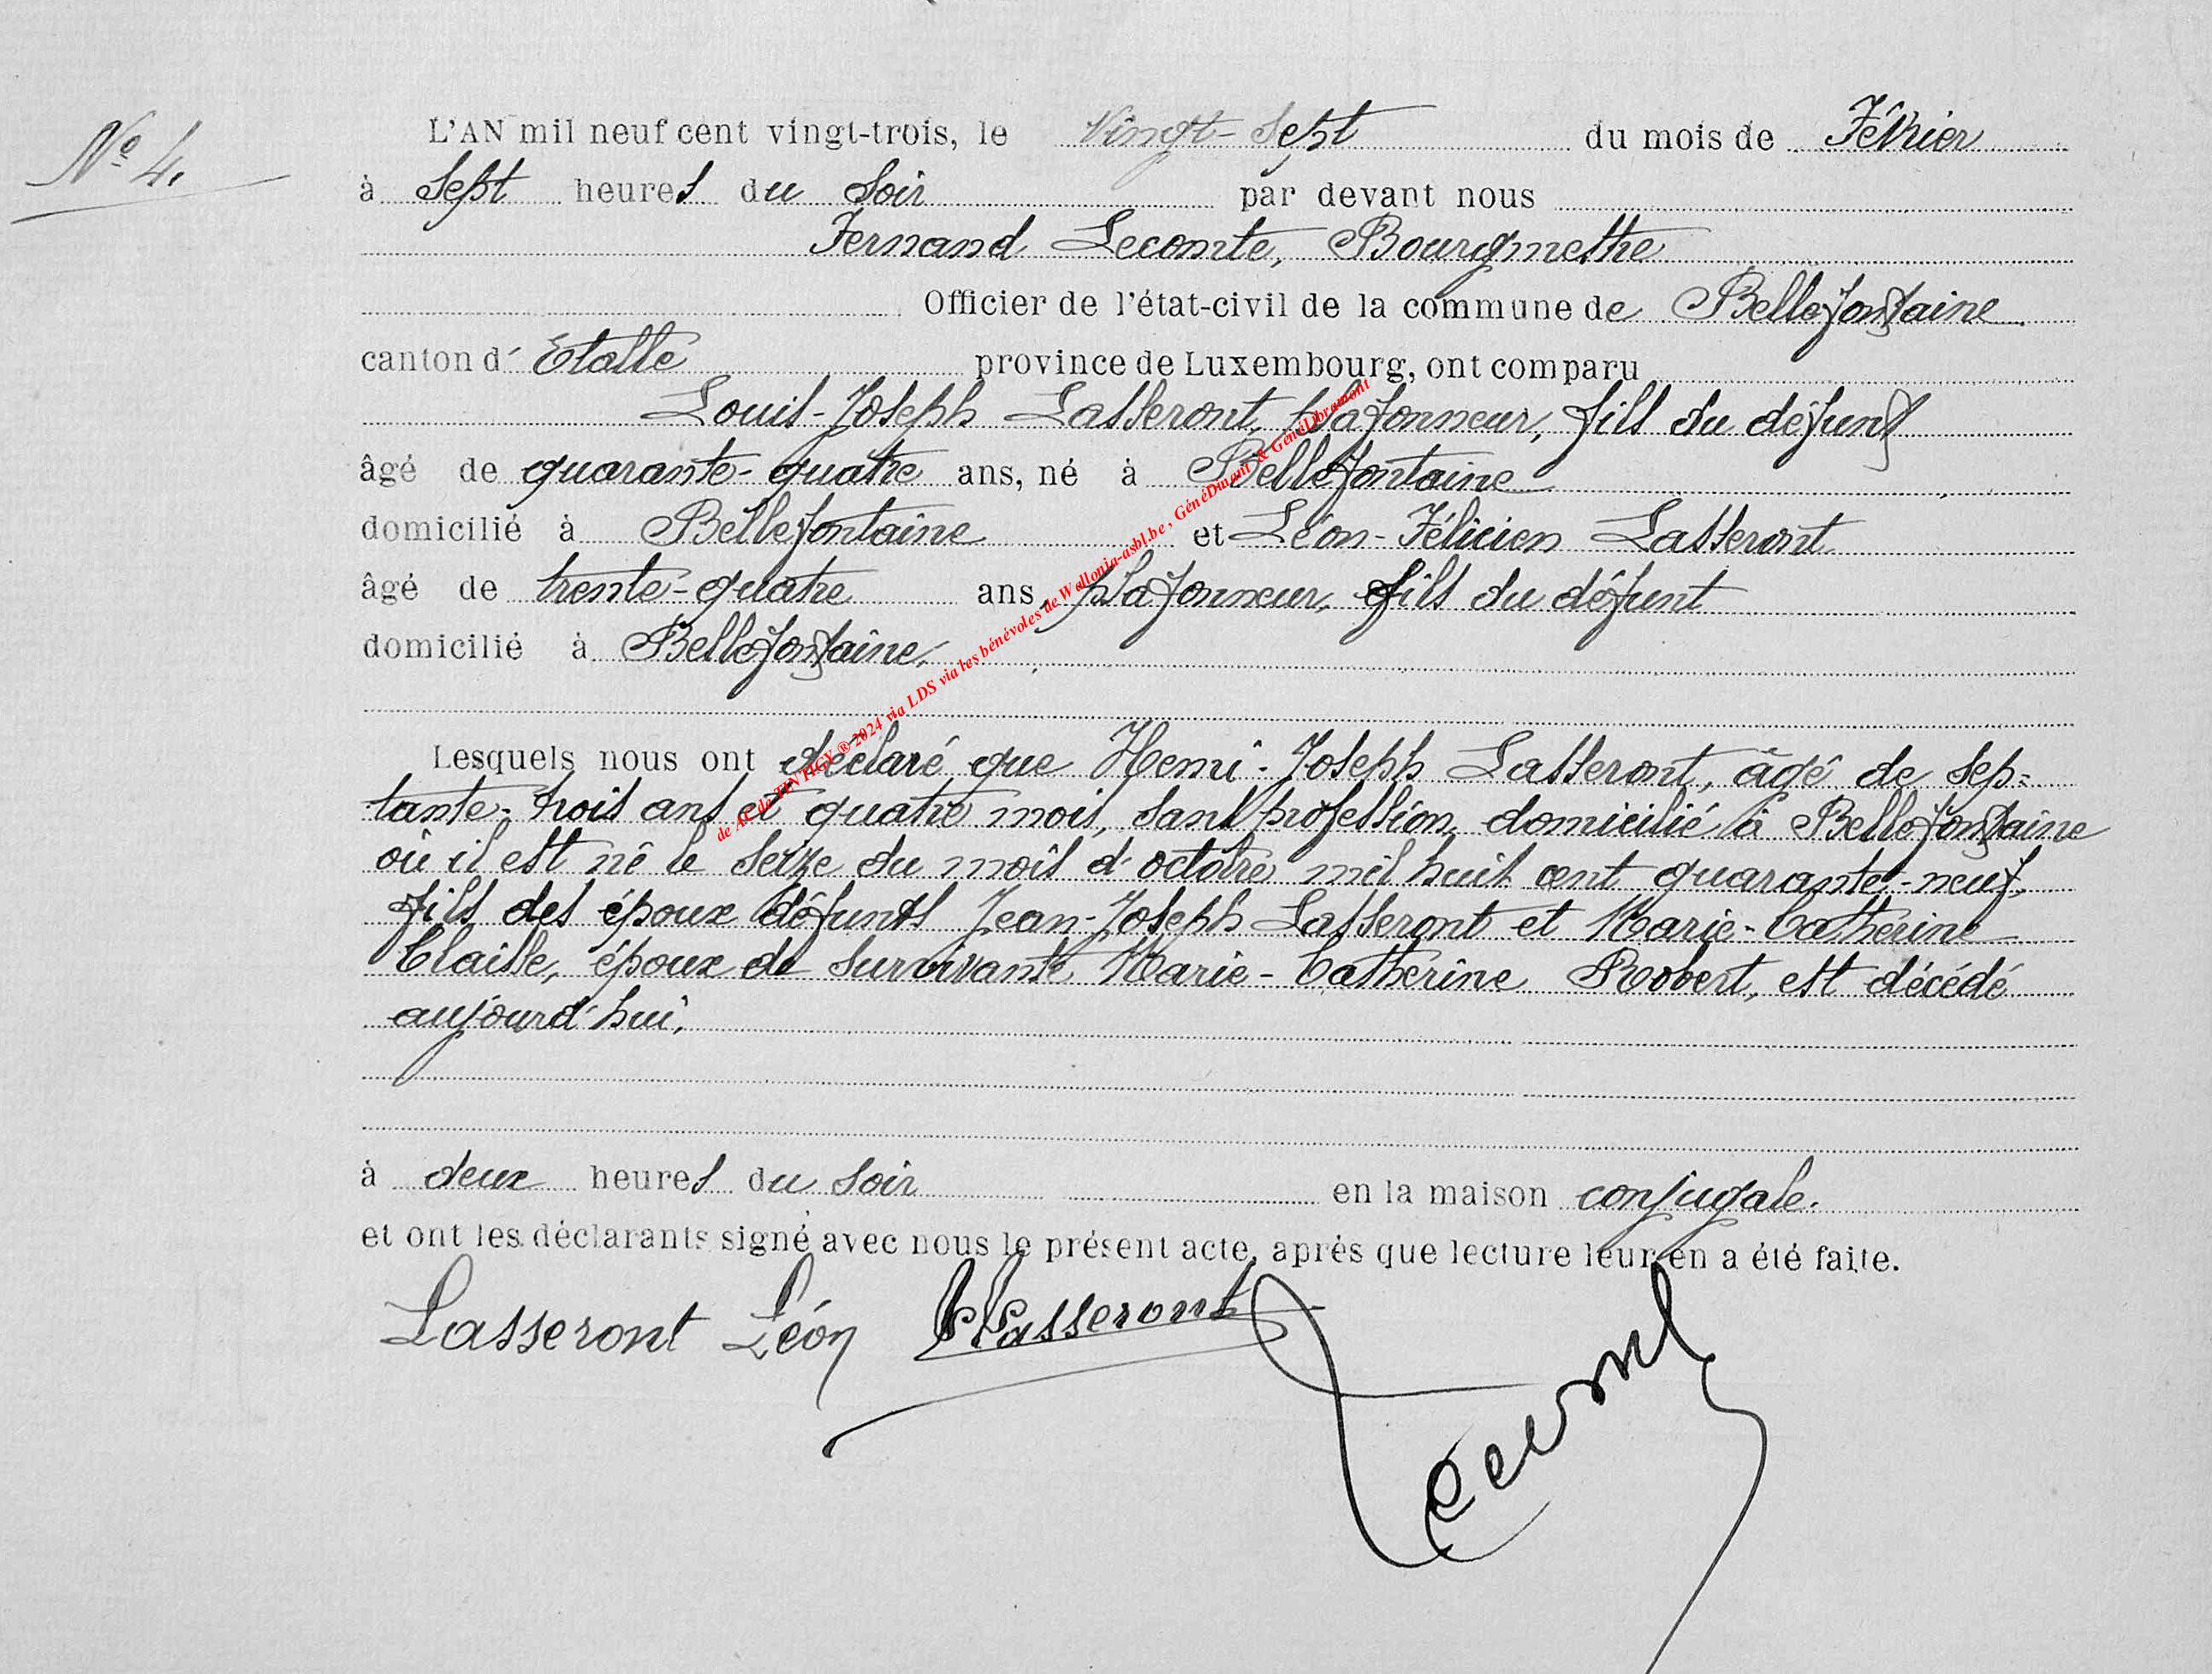 N° 4.
L'AN mil neuf cent vingt-trois, le Vingt-sept du mois de Février
à sept heures du soir par devant nous
Fernand Lecomte, Bourgmestre
Officier de l'état-civil de la commune de Bellefontaine
canton d' Etalle province de Luxembourg, ont comparu
Louis-Joseph Lasseront, plafonneur, fils du défunt
âgé de quarante-quatre ans, né à Bellefontaine
domicilié à Bellefontaine et Léon-Félicien Lasseront
âgé de trente-quatre ans, plafonneur, fils du défunt
domicilié à Bellefontaine.
Lesquels nous ont déclaré que Henri-Joseph Lasseront, âgé de sep=
tante-trois ans et quatre mois, sans profession, domicilié à Bellefontaine
où il est né le seize du mois d'octobre mil huit cent quarante-neuf,
fils des époux défunts Jean-Joseph Lasseront et Marie-Catherine
Claisse, époux de survivante Marie-Catherine Robert, est décédé
aujourd'hui,
à deux heures du soir en la maison conjugale.
et ont les déclarants signé avec nous le présent acte, après que lecture leur en a été faite.
Lasseront Léon Lasseront
Lecomte
de AE de TINTIGY ® 2024 via LDS via les bénévoles de Wallonia-asbl.be, GénéDinant & GénéLibramont